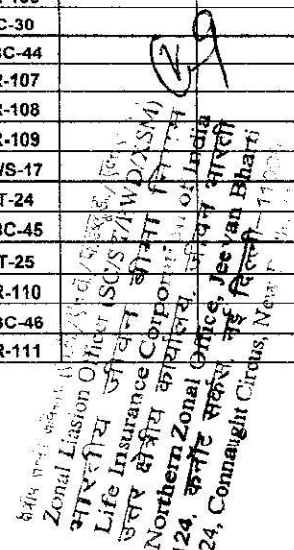 C-30
C-44
-107
-108
-109
/S-17
T-24
C-45
T-25
-110
C-46
-111
Zonal Liasion Officer (SC/ST/PWD/XSM)
भारतीय जीवन बीमा निगम
Life Insurance Corporation of India
उत्तर क्षेत्रीय कार्यालय, जीवन भारती
Northern Zonal Office, Jeevan Bharti
124, कनॉट सर्कस, नई दिल्ली
24, Connaught Circus, New